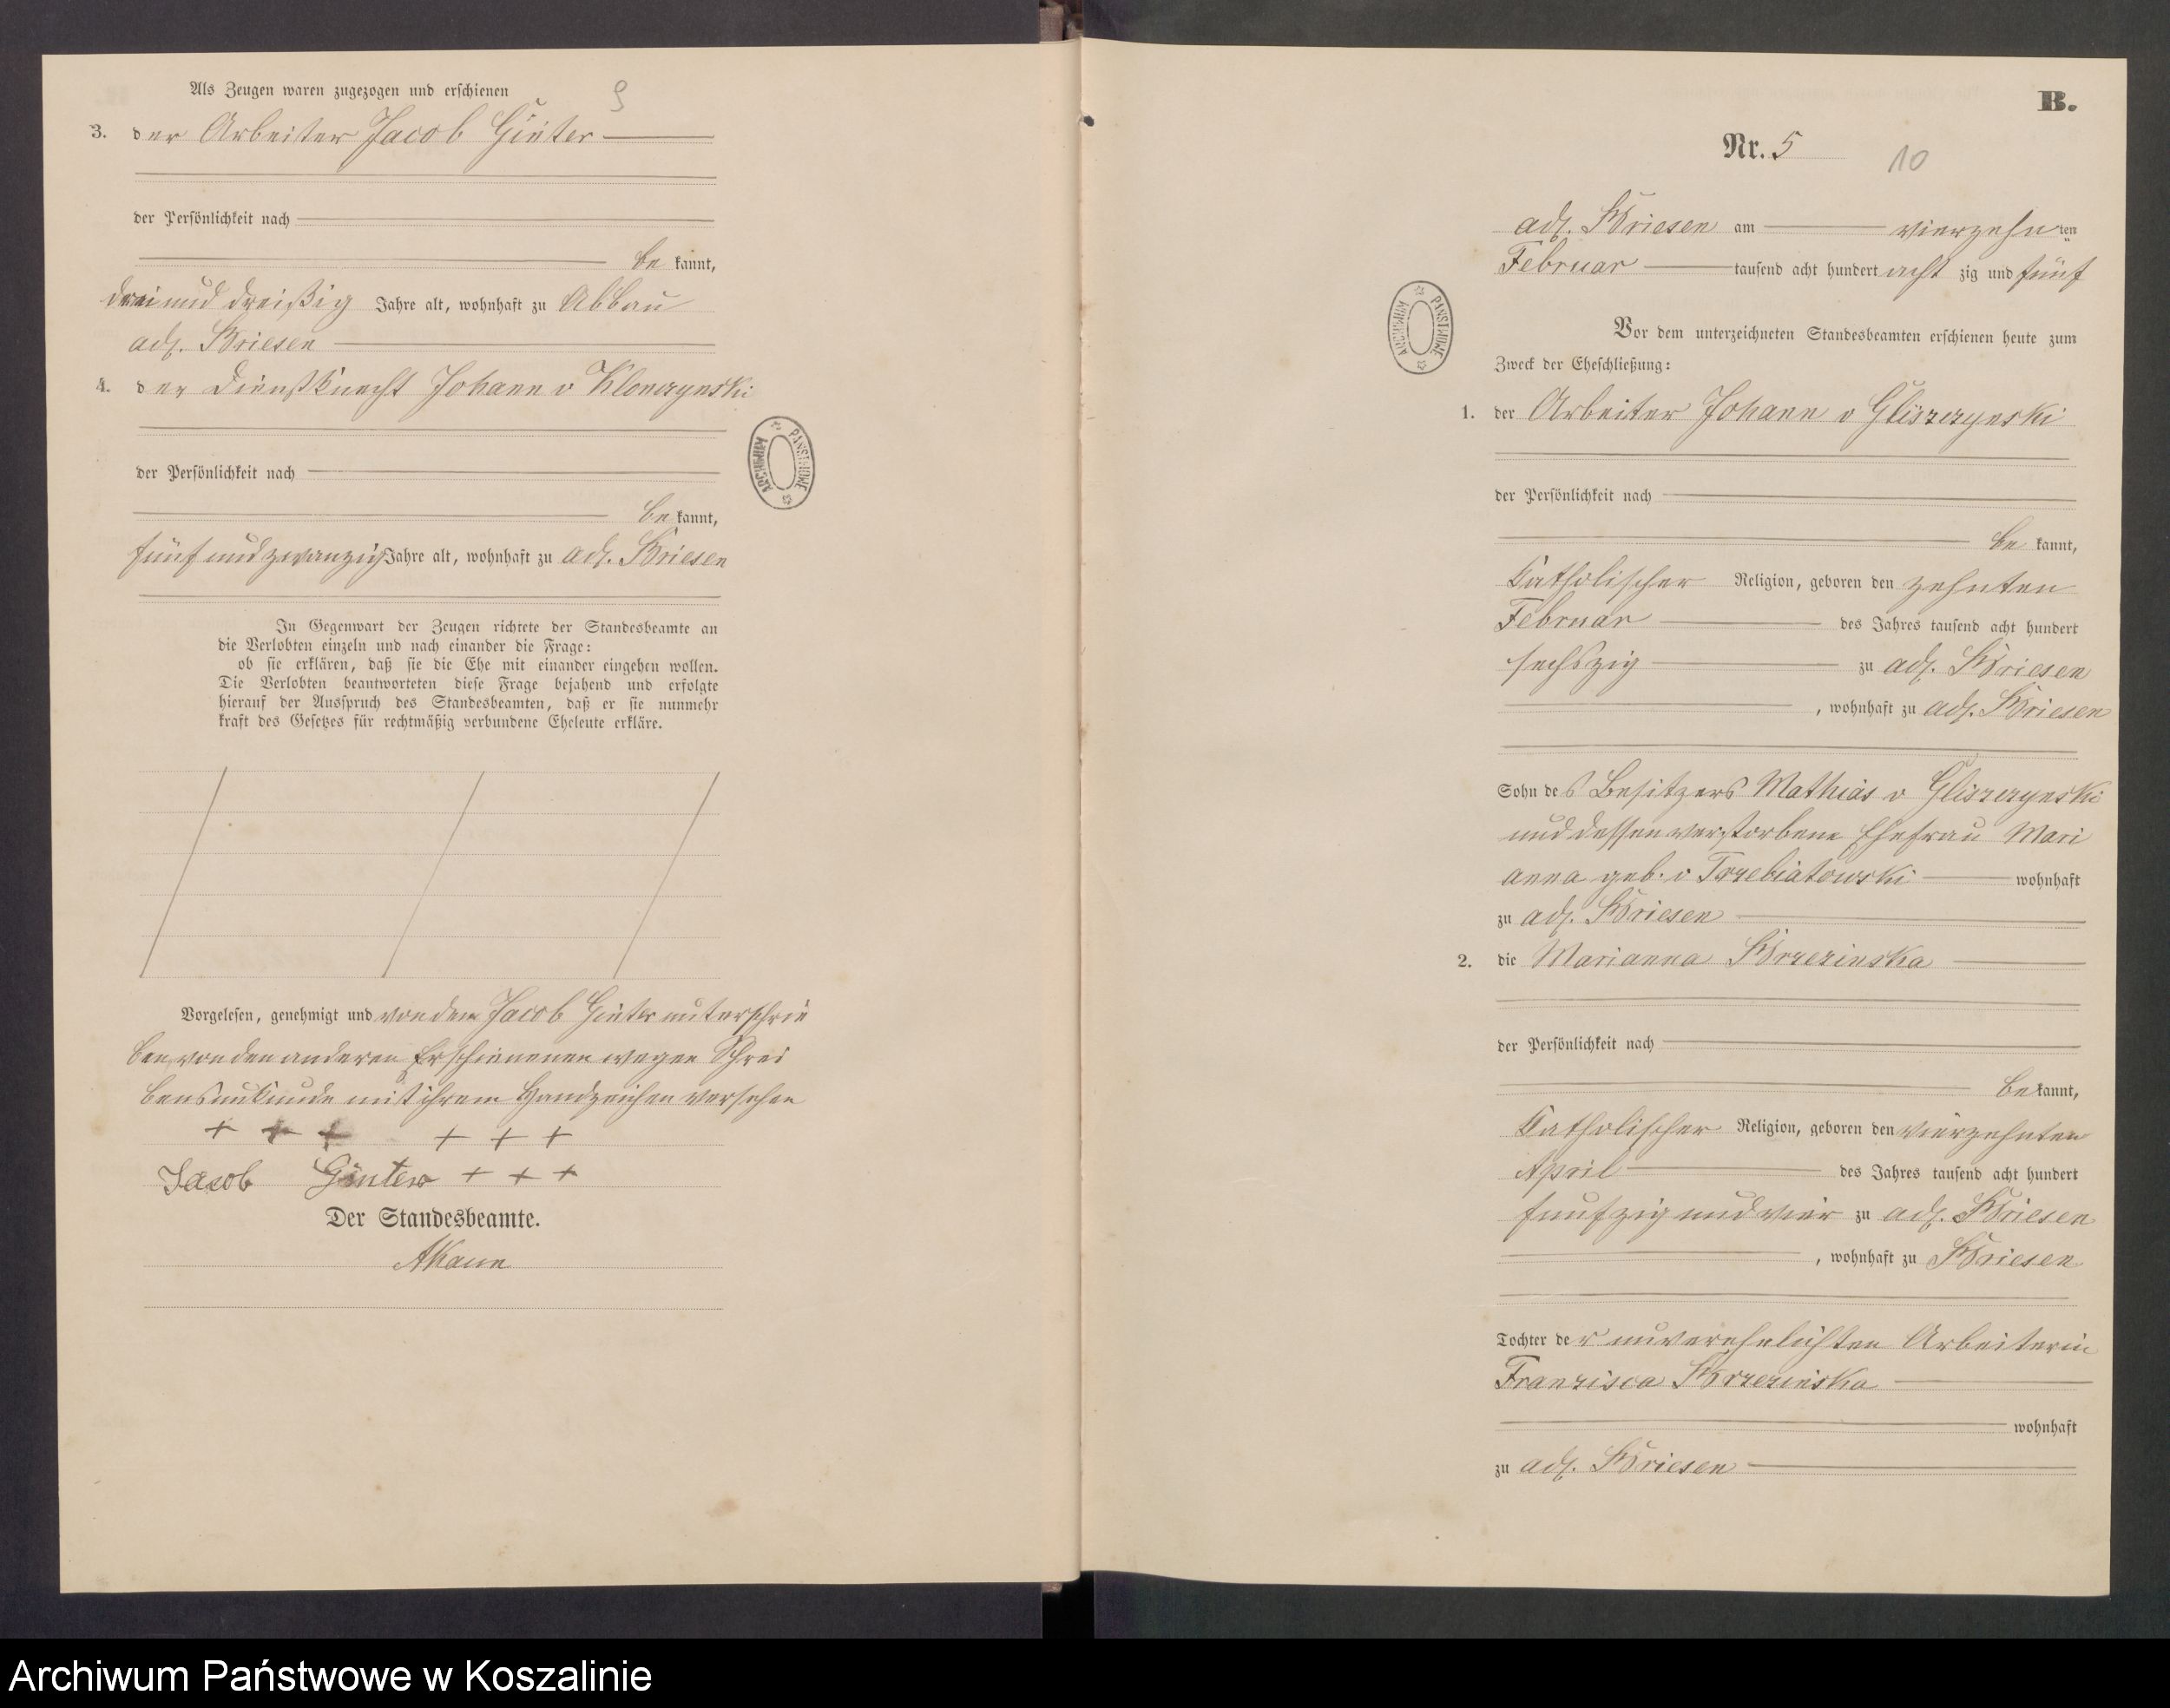 Als Zeugen waren zugezogen und erschienen
9
3. der Arbeiter Jacob Günter
der Persönlichkeit nach
be kannt,
drei und dreißig Jahre alt, wohnhaft zu Abbau
adl. Briesen
4. der Dienstknecht Johann v Klonczynski
der Persönlichkeit nach
be kannt,
fünf und zwanzig Jahre alt, wohnhaft zu adl. Briesen
In Gegenwart der Zeugen richtete der Standesbeamte an
die Verlobten einzeln und nach einander die Frage:
ob sie erklären, daß sie die Ehe mit einander eingehen wollen.
Die Verlobten beantworteten diese Frage bejahend und erfolgte
hierauf der Ausspruch des Standesbeamten, daß er sie nunmehr
kraft des Gesetzes für rechtmäßig verbundene Eheleute erkläre.
Vorgelesen, genehmigt und von dem Jacob Günter unterschrie
ben, von den anderen Erschienenen wegen Schrei
bensunkunde mit ihrem Handzeichen versehen
+ + + + + +
Jacob Günter + + +
Der Standesbeamte.
B.
Nr. 5
10
adl. Briesen am vierzehn ten
Februar tausend acht hundert acht zig und fünf
Vor dem unterzeichneten Standesbeamten erschienen heute zum
Zweck der Eheschließung:
1. der Arbeiter Johann v Gliszczynski
der Persönlichkeit nach
be kannt,
katholischer Religion, geboren den zehnten
Februar des Jahres tausend acht hundert
sechszig zu adl. Briesen
, wohnhaft zu adl. Briesen
Sohn des Besitzers Mathias v Gliszczynski
und dessen verstorbene Ehefrau Mari
anna geb. v Trzebiatowski wohnhaft
zu adl. Briesen
2. die Marianna Brzezinska
der Persönlichkeit nach
be kannt,
katholischer Religion, geboren den vierzehnten
April des Jahres tausend acht hundert
funfzig und vier zu adl. Briesen
, wohnhaft zu Briesen
Tochter der unverehelichten Arbeiterin
Franzisca Brzezinska
wohnhaft
zu adl. Briesen
ARCHIWUM PAŃSTWOWE
ARCHIWUM PAŃSTWOWE
Archiwum Państwowe w Koszalinie